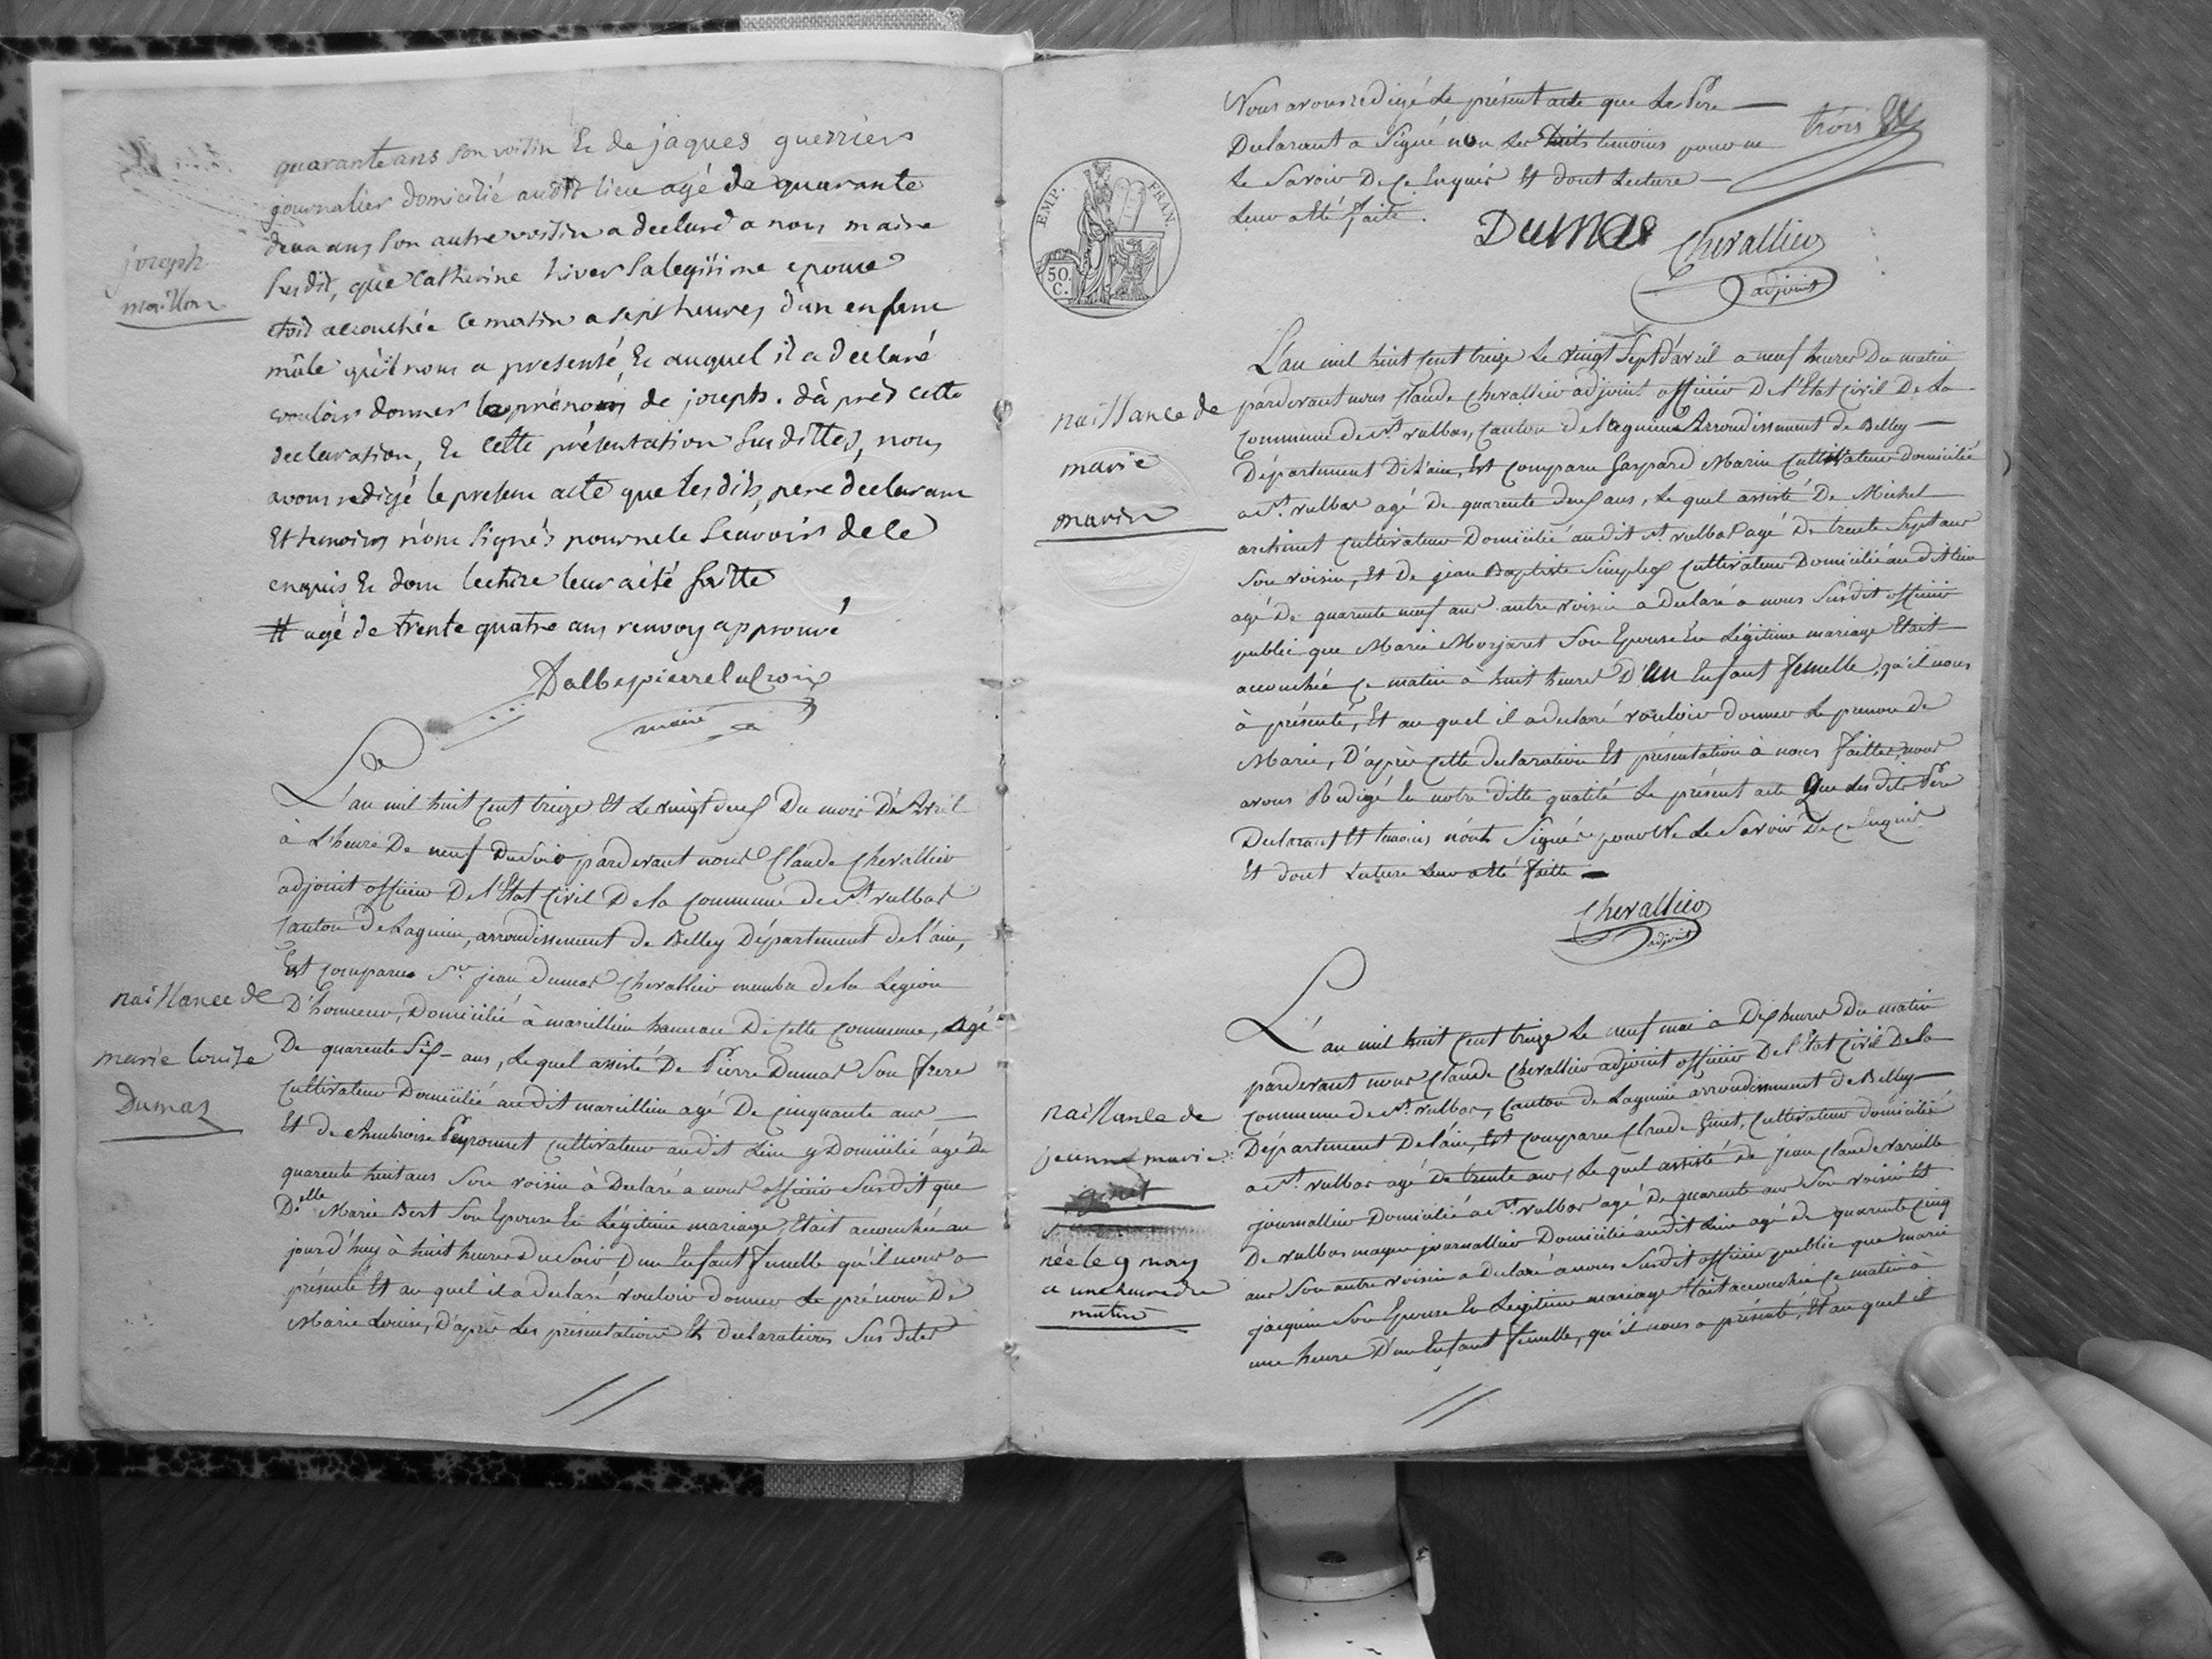 quarante ans son voisin Et de jaques guerriers
journalier domicilié audit lieu agé de quarante
deux ans son autre voisin a declaré a nous maire
susdit, que Catherine hiver sa legitime epouse
etoit accouchée ce matin a sept heures d'un enfant
mâle qu'il nous a presenté, Et auquel il a declaré
vouloir donner le prénom de joseph. d'après cette
declaration, Et cette présentation susdittes, nous
avons redigé le present acte que lesdits, pere declarant
Et temoins n'ont signés pour ne le scavoir de ce
enquis Et dont lecture leur a été faitte
# agé de trente quatre ans renvoy approuvé
Dalbepierre lacroix
maire
joseph
maillon
L'an mil huit cent treize Et le vingt deux Du mois D'Avril
à L'heure De neuf Du soir pardevant nous Claude Chevallier
adjoint officier De l'Etat Civil De la Commune de St. vulbas
Canton de Lagnieu, arrondissement de Belley Département de l'ain,
Est comparu Sr. jean dumas Chevallier membre de la Legion
D'honneur, Domicilié à marcillieu hameau De cette commune, agé
De quarente six ans, Lequel assisté De Pierre Dumas Son frere
Cultivateur Domicilié audit marcillieu agé De cinquante ans
Et de Ambroise Peyronnet cultivateur audit Lieu y Domicilié âgé de
quarente huit ans Son voisin à Declaré a nous officier Susdit que
Delle Marie Bert Son Epouse En Légitime mariage, Etait accouchée au
jourd'huy à huit heures Du Soir D'un Enfant femelle qu'il nous a
présenté Et au quel il a declaré vouloir donner Le prénom De
Marie Louise, D'après Les présentations Et declarations Sus dites
naissance de
marie louise
Dumas
Nous avons redigé Le présent acte que Le Père
Declarant a Signé non Les Dits temoins pour ne
Le Savoir De ce Enquis Et dont Lecture
Leur a été faite.
trois
Dumas
Chevallier
adjoint
EMP. FRAN.
50. C.
L'an mil huit cent treize Le vingt Sept d'avril a neuf heures Du matin
pardevant nous Claude Chevallier adjoint officier De l'Etat Civil De La
Commune de St. vulbas, Canton de Lagnieu Arrondissement de Belley
Département De l'ain, Est comparu Gaspard Marin Cultivateur domicilié
a St. vulbas agé de quarente deux ans, Le quel assisté De Michel
archinet Cultivateur Domicilié au dit St. vulbas agé De trente Sept ans
Son voisin, Et De jean Baptiste Simplex Cultivateur Domicilié au dit lieu
agé De quarente neuf ans autre voisin a Declaré a nous Susdit officier
public que Marie Morjaret Son Epouse En Légitime mariage Etait
accouchée ce matin à huit heures D'un Enfant femelle, qu'il nous
à présenté, Et au quel il a declaré vouloir donner Le prenom de
Marie, D'après cette declaration Et présentation à nous faittes, nous
avons Redigé En notre ditte qualité Le présent acte Que Les dits Père
Declarant Et temoins n'ont Signés pour Ne Le Savoir De ce Enquis
Et dont Lecture Leur a été faitte
Chevallier
adjoint
naissance de
marie
marin
L'an mil huit cent treize Le neuf mai à Dix heures Du matin
pardevant nous Claude Chevallier adjoint officier De l'Etat Civil De la
commune de St. vulbas, Canton de Lagnieu arrondissement de Belley
Département De l'ain, Est comparu Claude Ginet, Cultivateur domicilié
a St. vulbas agé de trente ans, Le quel assisté de jean Claude
journallier Domicilié a St. vulbas agé de quarente ans Son voisin Et
De vulbas journallier Domicilié audit Lieu agé de quarente cinq
ans Son autre voisin a Declaré à nous Susdit officier public que marie
jacquin Son Epouse En Légitime mariage Etait accouchée ce matin à
une heure D'un Enfant femelle, qu'il nous a présenté, Et au quel il
naissance de
jeanne marie
ginet
née le 9 may
a une heure du
matin